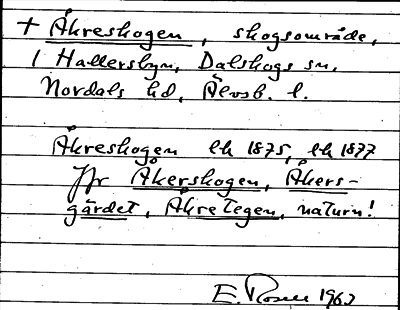 + Åkreskogen, skogsområde,
i Hallersbyn, Dalskogs sn,
Nordals hd, Älvsb. l.
Åkreskogen lk 1875, lk 1877
Jfr Åkerskogen, Åkers-
gärdet, Åkretegen, naturn!
E. Rosell 1962